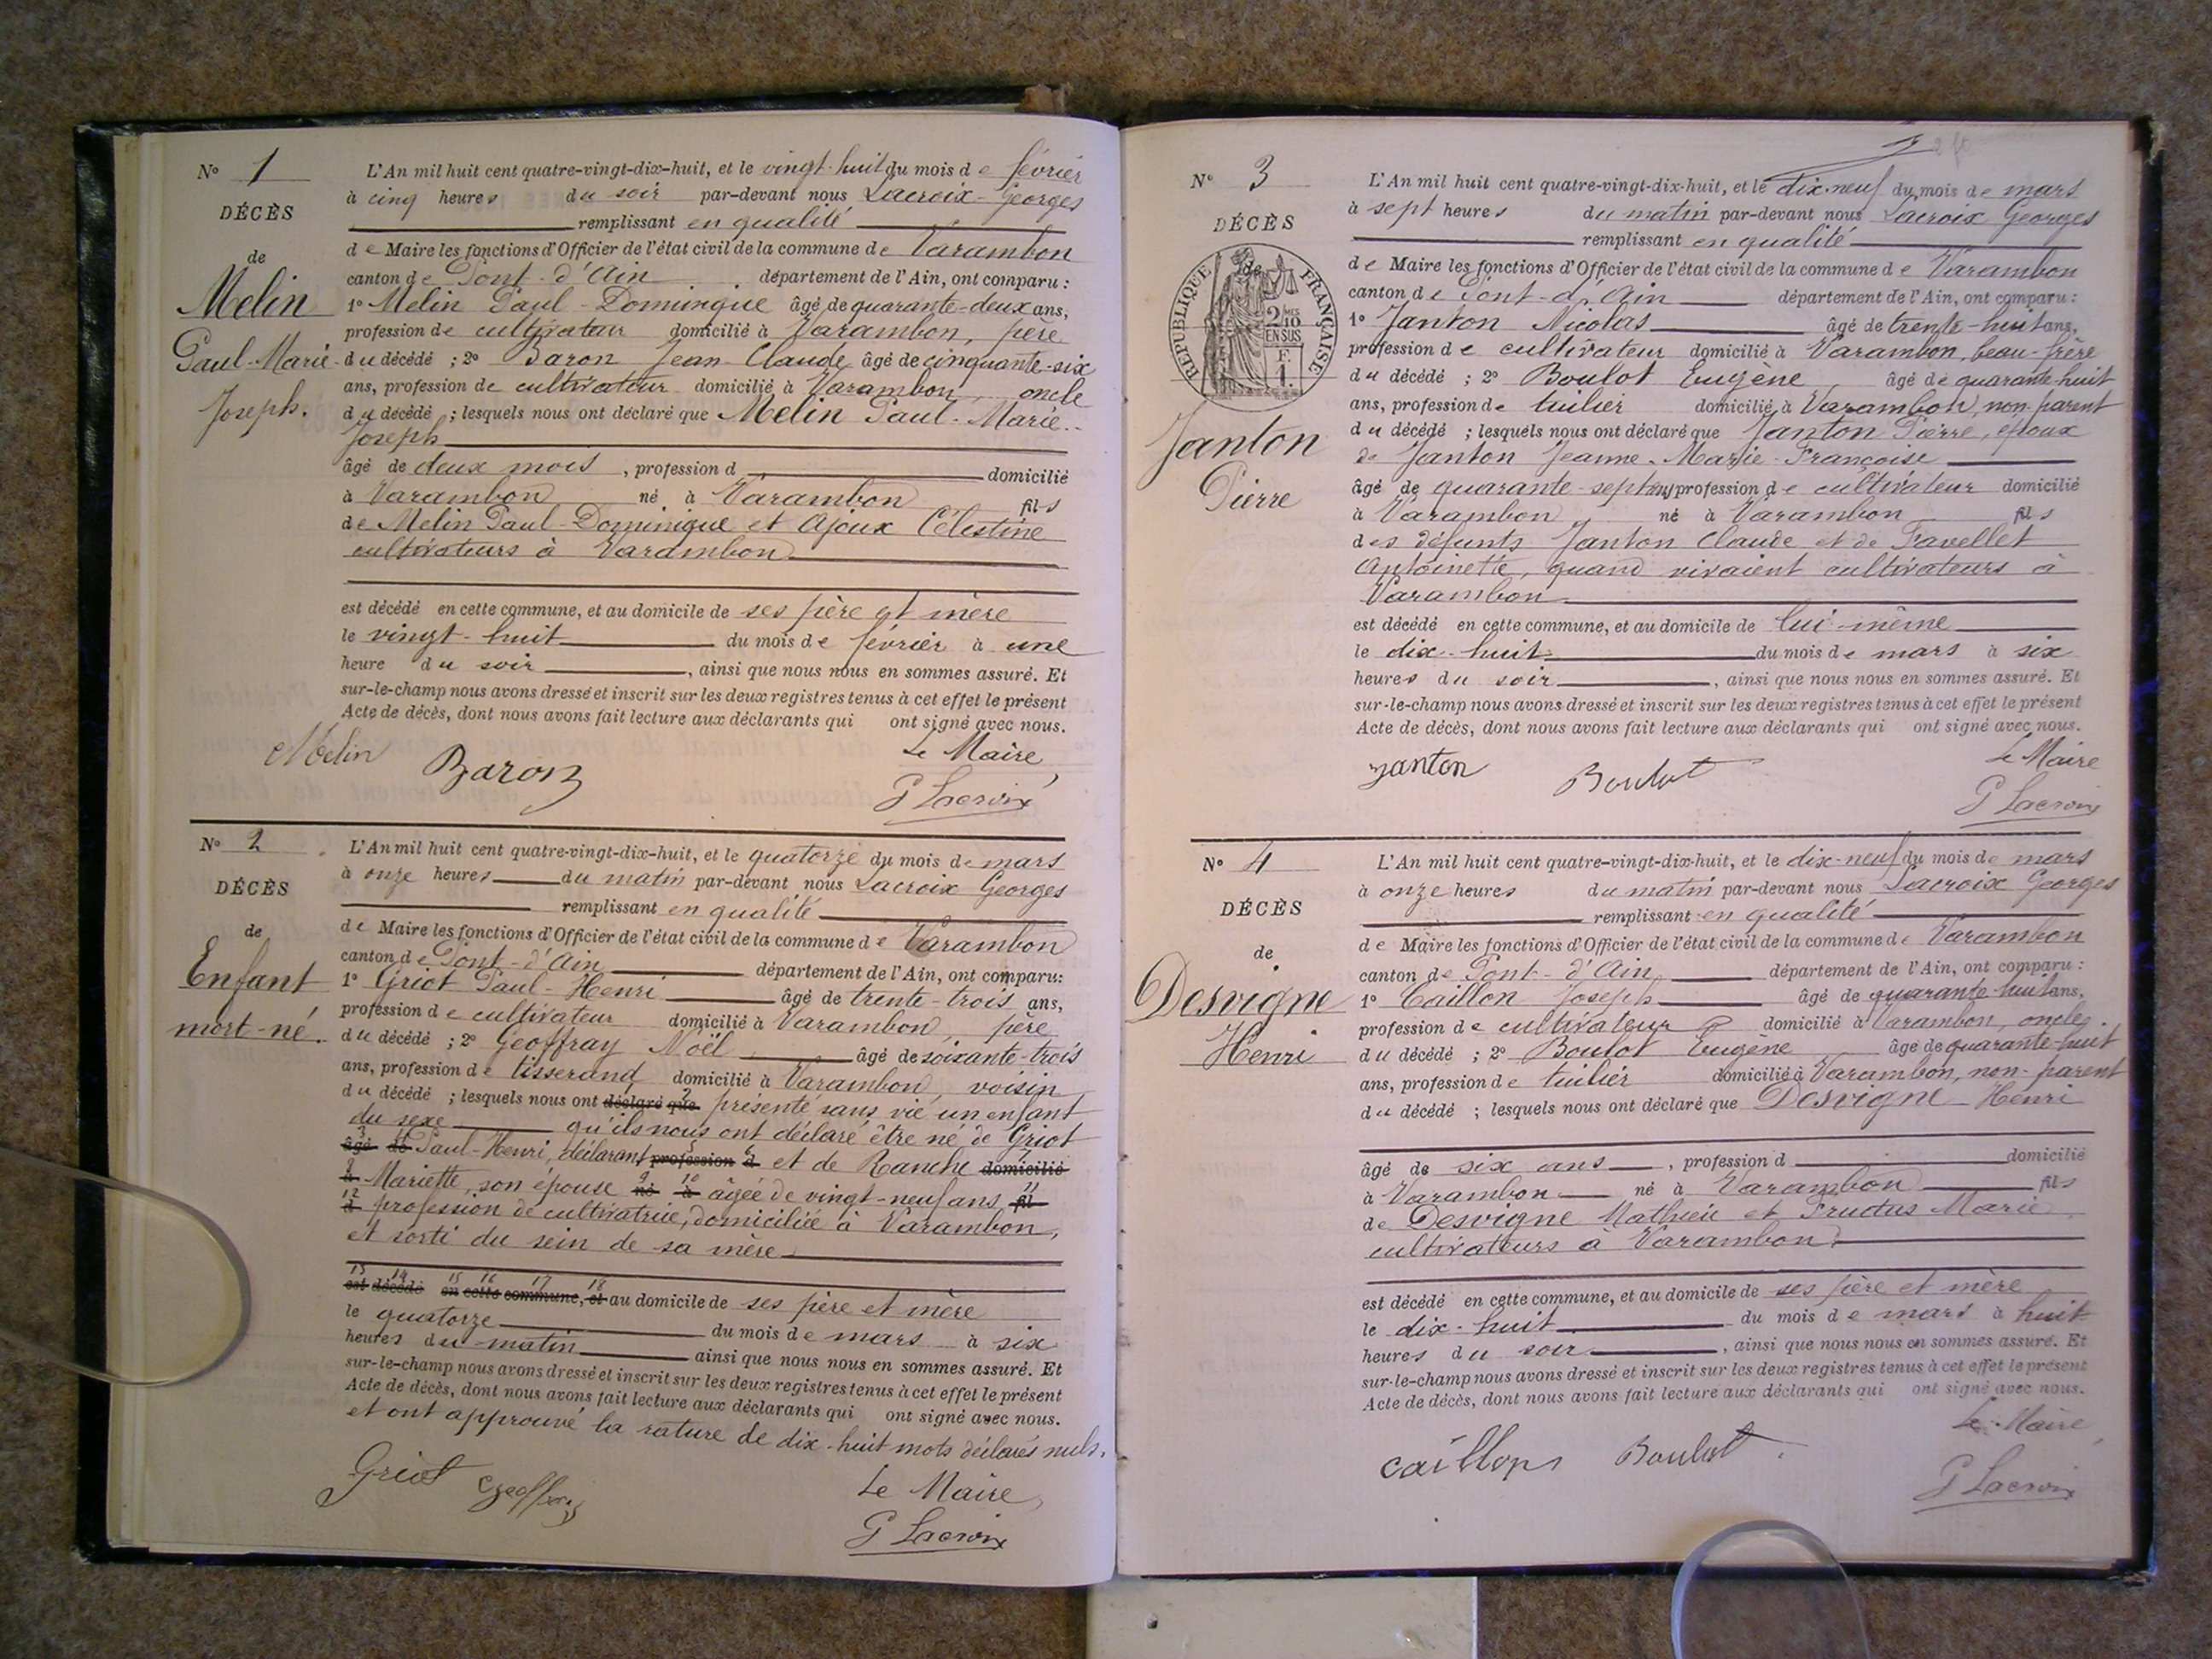 N° 1
DÉCÈS
de
Melin
Paul-Marie-
Joseph.
L'An mil huit cent quatre-vingt-dix-huit, et le vingt-huit du mois de février
à cinq heures du soir par-devant nous Lacroix Georges
remplissant en qualité
de Maire les fonctions d'Officier de l'état civil de la commune de Varambon
canton de Pont-d'Ain département de l'Ain, ont comparu :
1° Melin Paul-Dominique âgé de quarante-deux ans,
profession de cultivateur domicilié à Varambon, père
du décédé ; 2° Baron Jean Claude âgé de cinquante-six
ans, profession de cultivateur domicilié à Varambon, oncle
du décédé ; lesquels nous ont déclaré que Melin Paul-Marie-
Joseph
âgé de deux mois, profession d domicilié
à Varambon né à Varambon fils
de Melin Paul-Dominique et Ajoux Célestine
cultivateurs à Varambon
est décédé en cette commune, et au domicile de ses père et mère
le vingt-huit du mois de février à une
heure du soir, ainsi que nous nous en sommes assuré. Et
sur-le-champ nous avons dressé et inscrit sur les deux registres tenus à cet effet le présent
Acte de décès, dont nous avons fait lecture aux déclarants qui ont signé avec nous.
Le Maire,
Melin Baron G Lacroix
N° 2
DÉCÈS
de
Enfant
mort-né.
L'An mil huit cent quatre-vingt-dix-huit, et le quatorze du mois de mars
à onze heures du matin par-devant nous Lacroix Georges
remplissant en qualité
de Maire les fonctions d'Officier de l'état civil de la commune de Varambon
canton de Pont-d'Ain département de l'Ain, ont comparu:
1° Griot Paul-Henri âgé de trente-trois ans,
profession de cultivateur domicilié à Varambon, père
du décédé ; 2° Geoffray Noël âgé de soixante-trois
ans, profession de tisserand domicilié à Varambon, voisin
du décédé ; lesquels nous ont déclaré que présenté sans vie un enfant
du sexe qu'ils nous ont déclaré être né de Griot
3 âgé de Paul-Henri, déclarant profession d et de Ranche domicilié
à Mariette, son épouse né à âgée de vingt-neuf ans fil
d profession de cultivatrice, domiciliée à Varambon,
et sorti du sein de sa mère
13 14 15 16 17 18
est décédé en cette commune, et au domicile de ses père et mère
le quatorze du mois de mars à six
heures du matin ainsi que nous nous en sommes assuré. Et
sur-le-champ nous avons dressé et inscrit sur les deux registres tenus à cet effet le présent
Acte de décès, dont nous avons fait lecture aux déclarants qui ont signé avec nous.
et ont approuvé la rature de dix-huit mots déclarés nuls.
Griot Geoffray Le Maire,
G Lacroix
N° 3
DÉCÈS
de
RÉPUBLIQUE FRANÇAISE
2/10 EN SUS
F. 1.
Janton
Pierre
L'An mil huit cent quatre-vingt-dix-huit, et le dix-neuf du mois de mars
à sept heures du matin par-devant nous Lacroix Georges
remplissant en qualité
de Maire les fonctions d'Officier de l'état civil de la commune de Varambon
canton de Pont-d'Ain département de l'Ain, ont comparu :
1° Janton Nicolas âgé de trente-huit ans,
profession de cultivateur domicilié à Varambon, beau-frère
du décédé ; 2° Boulot Eugène âgé de quarante-huit
ans, profession de tuilier domicilié à Varambon, non-parent
du décédé ; lesquels nous ont déclaré que Janton Pierre, époux
de Janton Jeanne-Marie-Françoise
âgé de quarante-sept ans profession de cultivateur domicilié
à Varambon né à Varambon fils
des défunts Janton Claude et de Favellet
Antoinette, quand vivaient cultivateurs à
Varambon
est décédé en cette commune, et au domicile de lui-même
le dix-huit du mois de mars à six
heures du soir, ainsi que nous nous en sommes assuré. Et
sur-le-champ nous avons dressé et inscrit sur les deux registres tenus à cet effet le présent
Acte de décès, dont nous avons fait lecture aux déclarants qui ont signé avec nous.
Janton Boulot Le Maire
G Lacroix
N° 4
DÉCÈS
de
Desvigne
Henri
L'An mil huit cent quatre-vingt-dix-huit, et le dix-neuf du mois de mars
à onze heures du matin par-devant nous Lacroix Georges
remplissant en qualité
de Maire les fonctions d'Officier de l'état civil de la commune de Varambon
canton de Pont-d'Ain département de l'Ain, ont comparu :
1° Caillon Joseph âgé de quarante-huit ans,
profession de cultivateur domicilié à Varambon, oncle
du décédé ; 2° Boulot Eugène âgé de quarante-huit
ans, profession de tuilier domicilié à Varambon, non-parent
du décédé ; lesquels nous ont déclaré que Desvigne Henri
âgé de six ans, profession d domicilié
à Varambon né à Varambon fils
de Desvigne Mathieu et Fructus Marie
cultivateurs à Varambon
est décédé en cette commune, et au domicile de ses père et mère
le dix-huit du mois de mars à huit
heures du soir, ainsi que nous nous en sommes assuré. Et
sur-le-champ nous avons dressé et inscrit sur les deux registres tenus à cet effet le présent
Acte de décès, dont nous avons fait lecture aux déclarants qui ont signé avec nous.
Le Maire,
Caillon Boulot G Lacroix